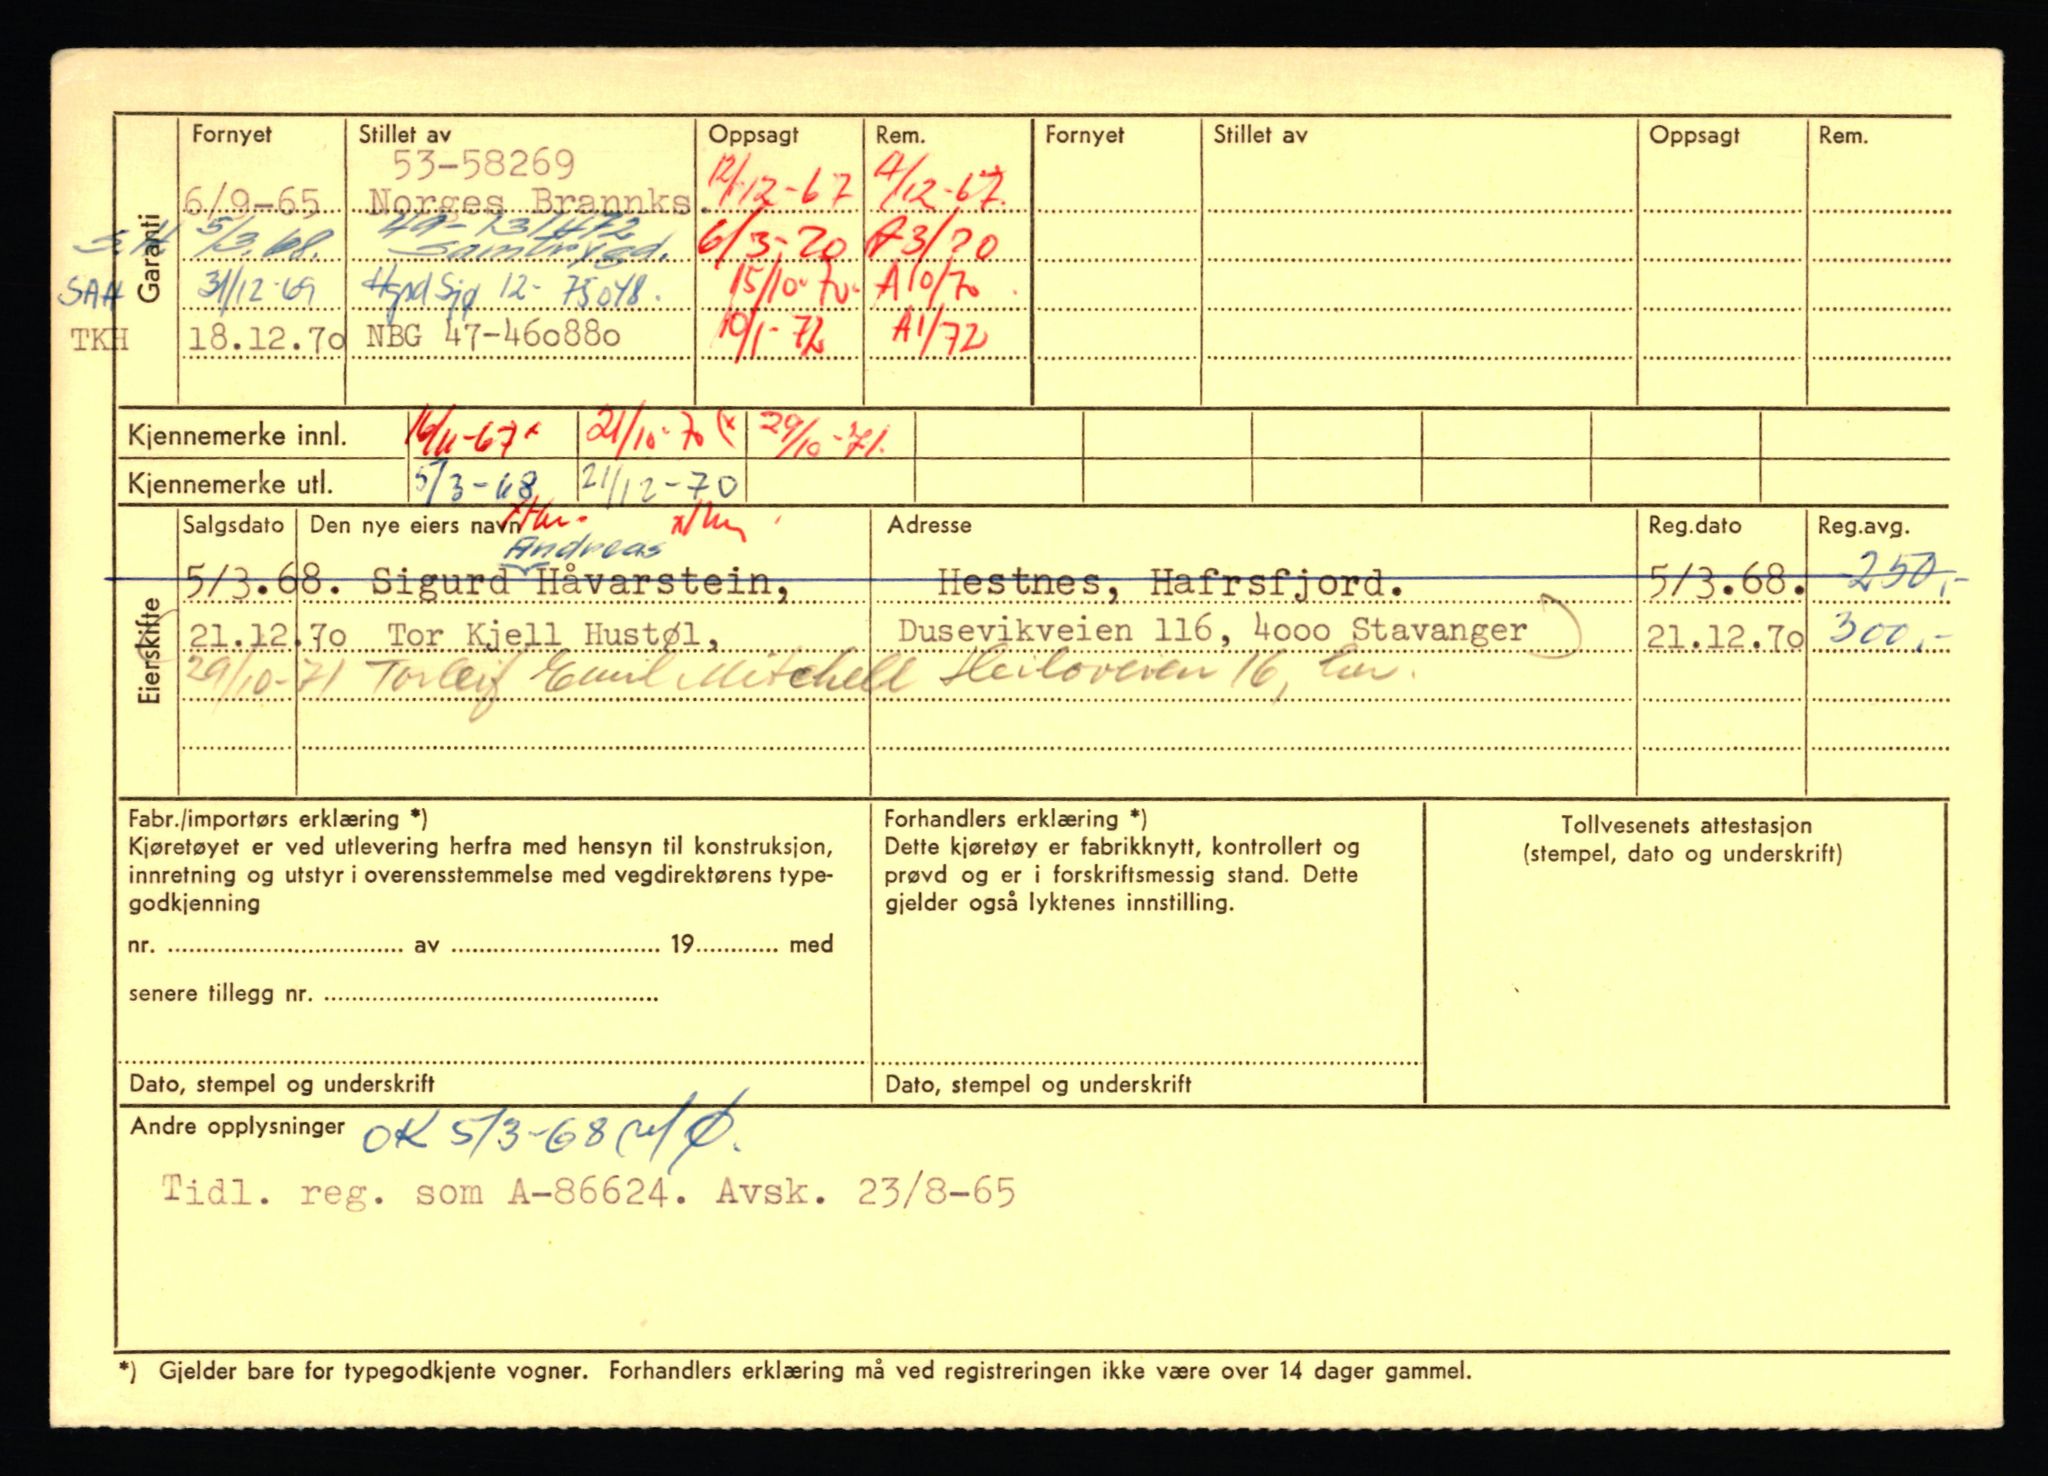 Garanti
Fornyet Stillet av Oppsagt Rem. Fornyet Stillet av Oppsagt Rem.
53-58269
6/9-65 Norges Brannks. 12/12-67 A/12-67.
5/3.68. Samtrygd. 6/3-70 A3/70
SAH 31/12-69 12-75048. 15/10-70. A10/70
TKH 18.12.70 NBG 47-460880 10/1-72 A1/72
Kjennemerke innl. 16/11-67 21/10-70 29/10-71.
Kjennemerke utl. 5/3-68 21/12-70
Eierskifte
Salgsdato Den nye eiers navn Adresse Reg.dato Reg.avg.
Andreas
5/3.68. Sigurd Håvarstein, Hestnes, Hafrsfjord. 5/3.68. 250,-
21.12.70 Tor Kjell Hustøl, Dusevikveien 116, 4000 Stavanger 21.12.70 300,-
29/10-71 Torleif Emil Mitchell Heiloveien 16, her.
Fabr./importørs erklæring *)
Kjøretøyet er ved utlevering herfra med hensyn til konstruksjon,
innretning og utstyr i overensstemmelse med vegdirektørens type-
godkjenning
nr. .............................. av ........................... 19........... med
senere tillegg nr. ...........................................
Dato, stempel og underskrift
Forhandlers erklæring *)
Dette kjøretøy er fabrikknytt, kontrollert og
prøvd og er i forskriftsmessig stand. Dette
gjelder også lyktenes innstilling.
Dato, stempel og underskrift
Tollvesenets attestasjon
(stempel, dato og underskrift)
Andre opplysninger OK 5/3-68
Tidl. reg. som A-86624. Avsk. 23/8-65
*) Gjelder bare for typegodkjente vogner. Forhandlers erklæring må ved registreringen ikke være over 14 dager gammel.